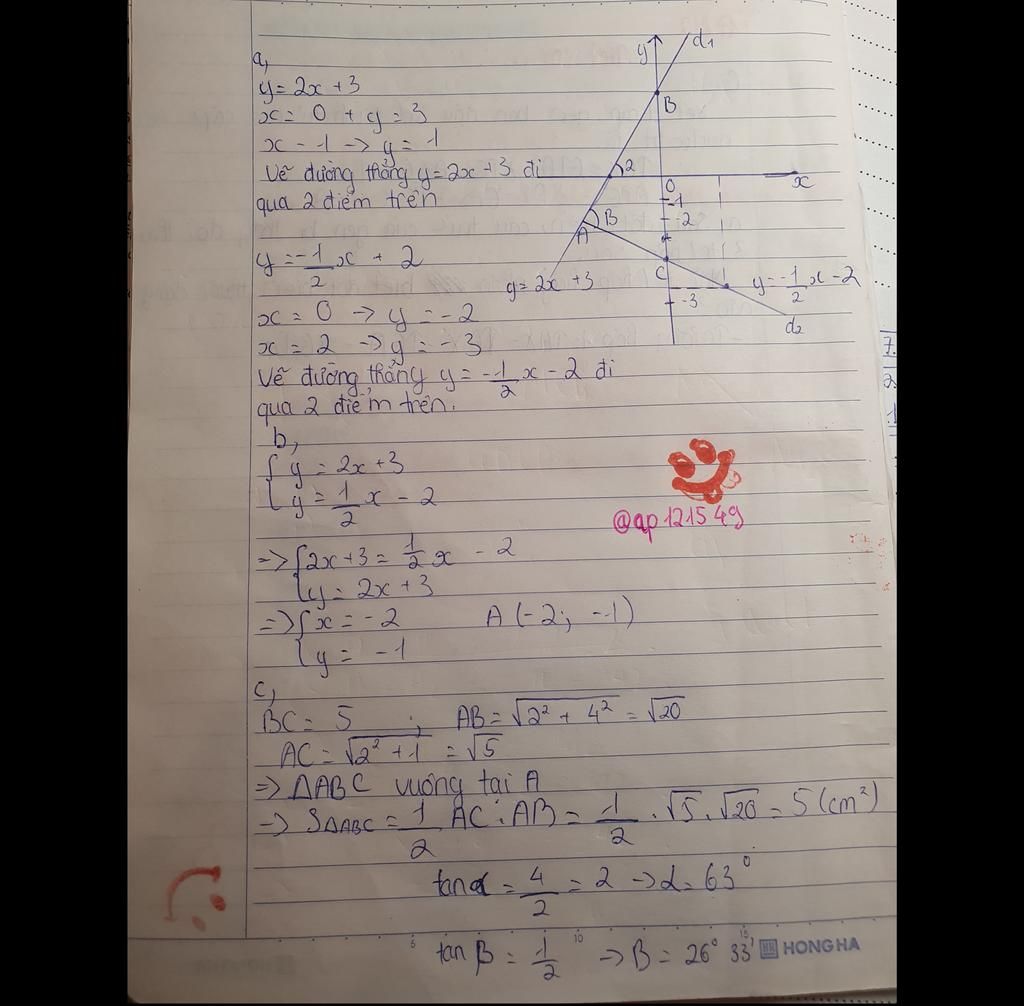 a,
y = 2x + 3
x = 0 + y = 3
x - 1 -> y = 1
Vẽ đường thẳng y = 2x + 3 đi
qua 2 điểm trên
y = -1/2 x + 2
x = 0 -> y = -2
x = 2 -> y = -3
Vẽ đường thẳng y = -1/2 x - 2 đi
qua 2 điểm trên.
y
d1
B
2
O
x
-1
-2
B
A
C
-3
y = 2x + 3
y = -1/2 x - 2
d2
b,
{ y = 2x + 3
{ y = 1/2 x - 2
=> { 2x + 3 = 1/2 x - 2
{ y = 2x + 3
=> { x = -2 A (-2; -1)
{ y = -1
@ap121549
c,
BC = 5 ; AB = √(2² + 4²) = √20
AC = √(2² + 1) = √5
=> ΔABC vuông tại A
-> SΔABC = 1/2 AC . AB = 1/2 . √5 . √20 = 5 (cm²)
tan α = 4/2 = 2 -> α = 63°
tan β = 1/2 -> B = 26° 33'
HONG HA
7.
2
1
6
10
15